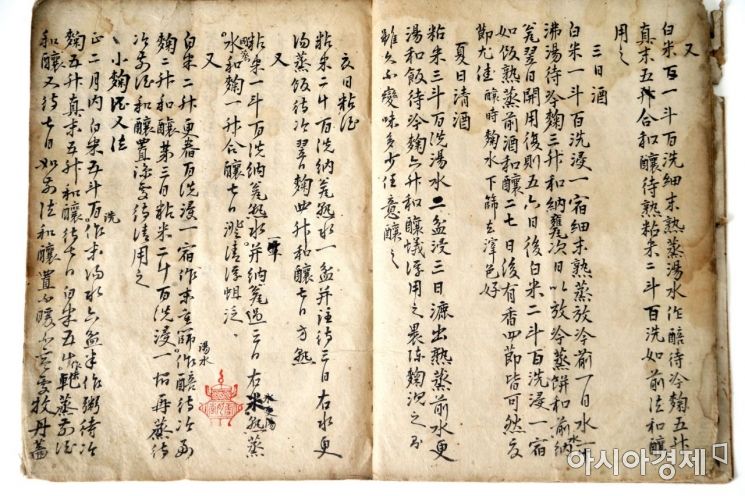 又
白米一斗百洗細末熟蒸湯水作醅待冷麴五升
真末五升合和釀待熟粘米二斗百洗如前法和釀
用之
三日酒
白米一斗百洗浸一宿細末熟蒸放冷前一日水一
沸湯待冷麴三升和納瓮次日以放冷蒸餅和前納
瓮翌日開用復則五六日後白米二斗百洗浸一宿
如飯熟蒸前酒和釀二七日後有香四節皆可然夏
節尤佳釀時麴水下篩去滓色好
夏日清酒
粘米三斗百洗湯水二盆浸三日漉出熟蒸前水更
湯和飯待冷麴六升和釀蟻浮用之
雖久不變味多少任意釀之
粘米二斗百洗納瓮熟水一盆并注待三日右水更
湯蒸飯待冷翌日麴四升和釀七日方熟
又
粘米一斗百洗納瓮熟水一并納瓮過三日右米熟蒸
水和麴一升合釀七日澄清浮蛆泛泛
又
白米二升更舂百洗浸一宿作末重篩作醅待冷
麴二升和釀第三日粘米二斗百洗浸一宿再蒸待
冷前酒和釀置涼處待清用之
小麴酒又法
正二月內白米五斗百洗作末湯水六盆半作粥待冷
麴五升真末五升和釀待七日白米五斗
和釀又待七日如前法和釀置不暖不寒處
湯水
아시아경제